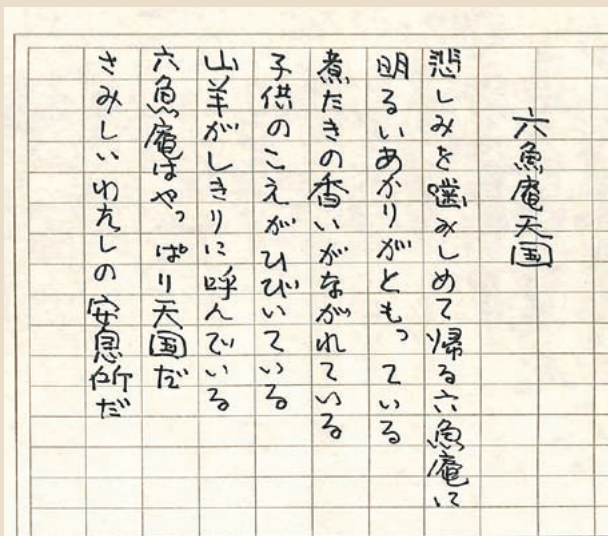 六魚庵天国
悲しみを噛みしめて帰る六魚庵に
明るいあかりがともっている
煮たきの香いがながれている
子供のこえがひびいている
山羊がしきりに呼んでいる
六魚庵はやっぱり天国だ
さみしいわたしの安息所だ